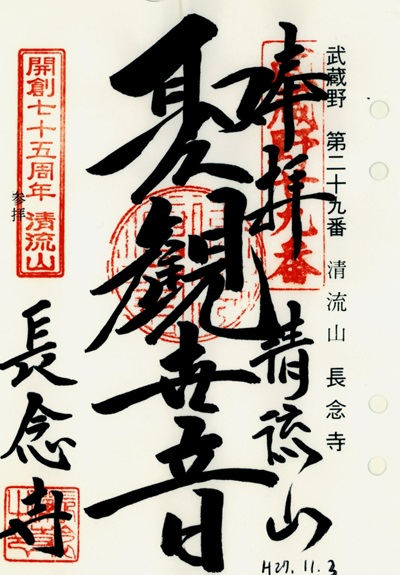 武蔵野 第二十九番 清流山 長念寺
武蔵野第廿九番
奉拝 清流山
聖観世音
開創七十五周年 清流山
参拝
長念寺
H27.11.3